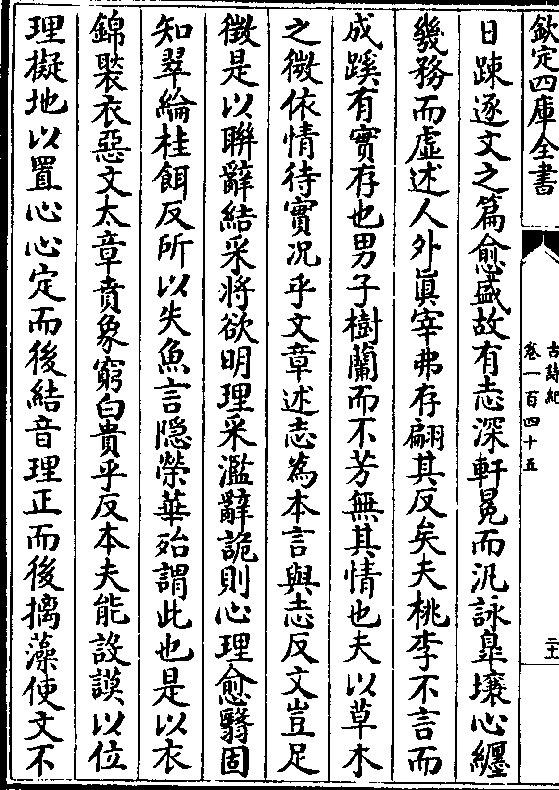 欽定四庫全書
古詩紀
卷一百四十五
日踈逐文之篇愈盛故有志深軒冕而汎詠皐壤心纏
幾務而虛述人外眞宰弗存翩其反矣夫桃李不言而
成蹊有實存也男子樹蘭而不芳無其情也夫以草木
之微依情待實况乎文章述志為本言與志反文豈足
徵是以聨辭結采將欲明理采濫辭詭則心理愈翳固
知翠綸桂餌反所以失魚言隠榮華殆謂此也是以衣
錦褧衣惡文太章賁象窮白貴乎反本夫能設謨以位
理擬地以置心心定而後結音理正而後摛藻使文不